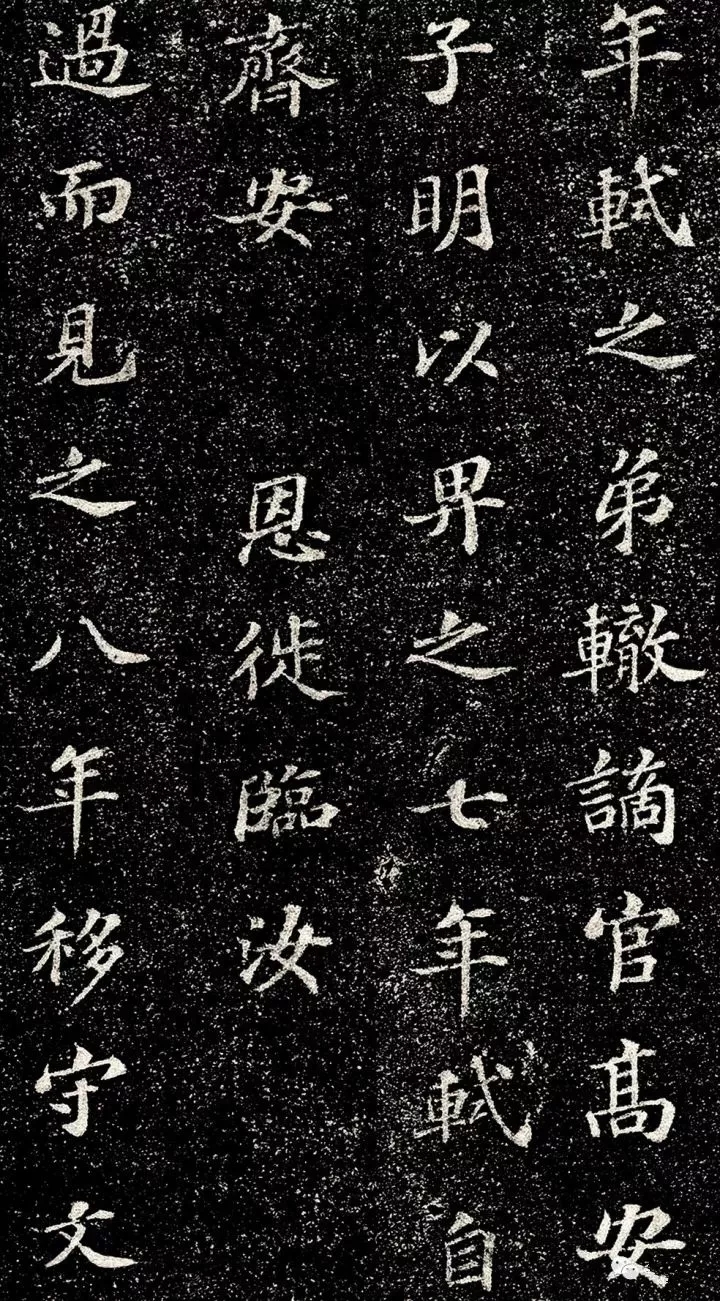 年軾之弟轍謫官高安
子明以畀之七年軾自
齊安　恩徙臨汝
過而見之八年移守文